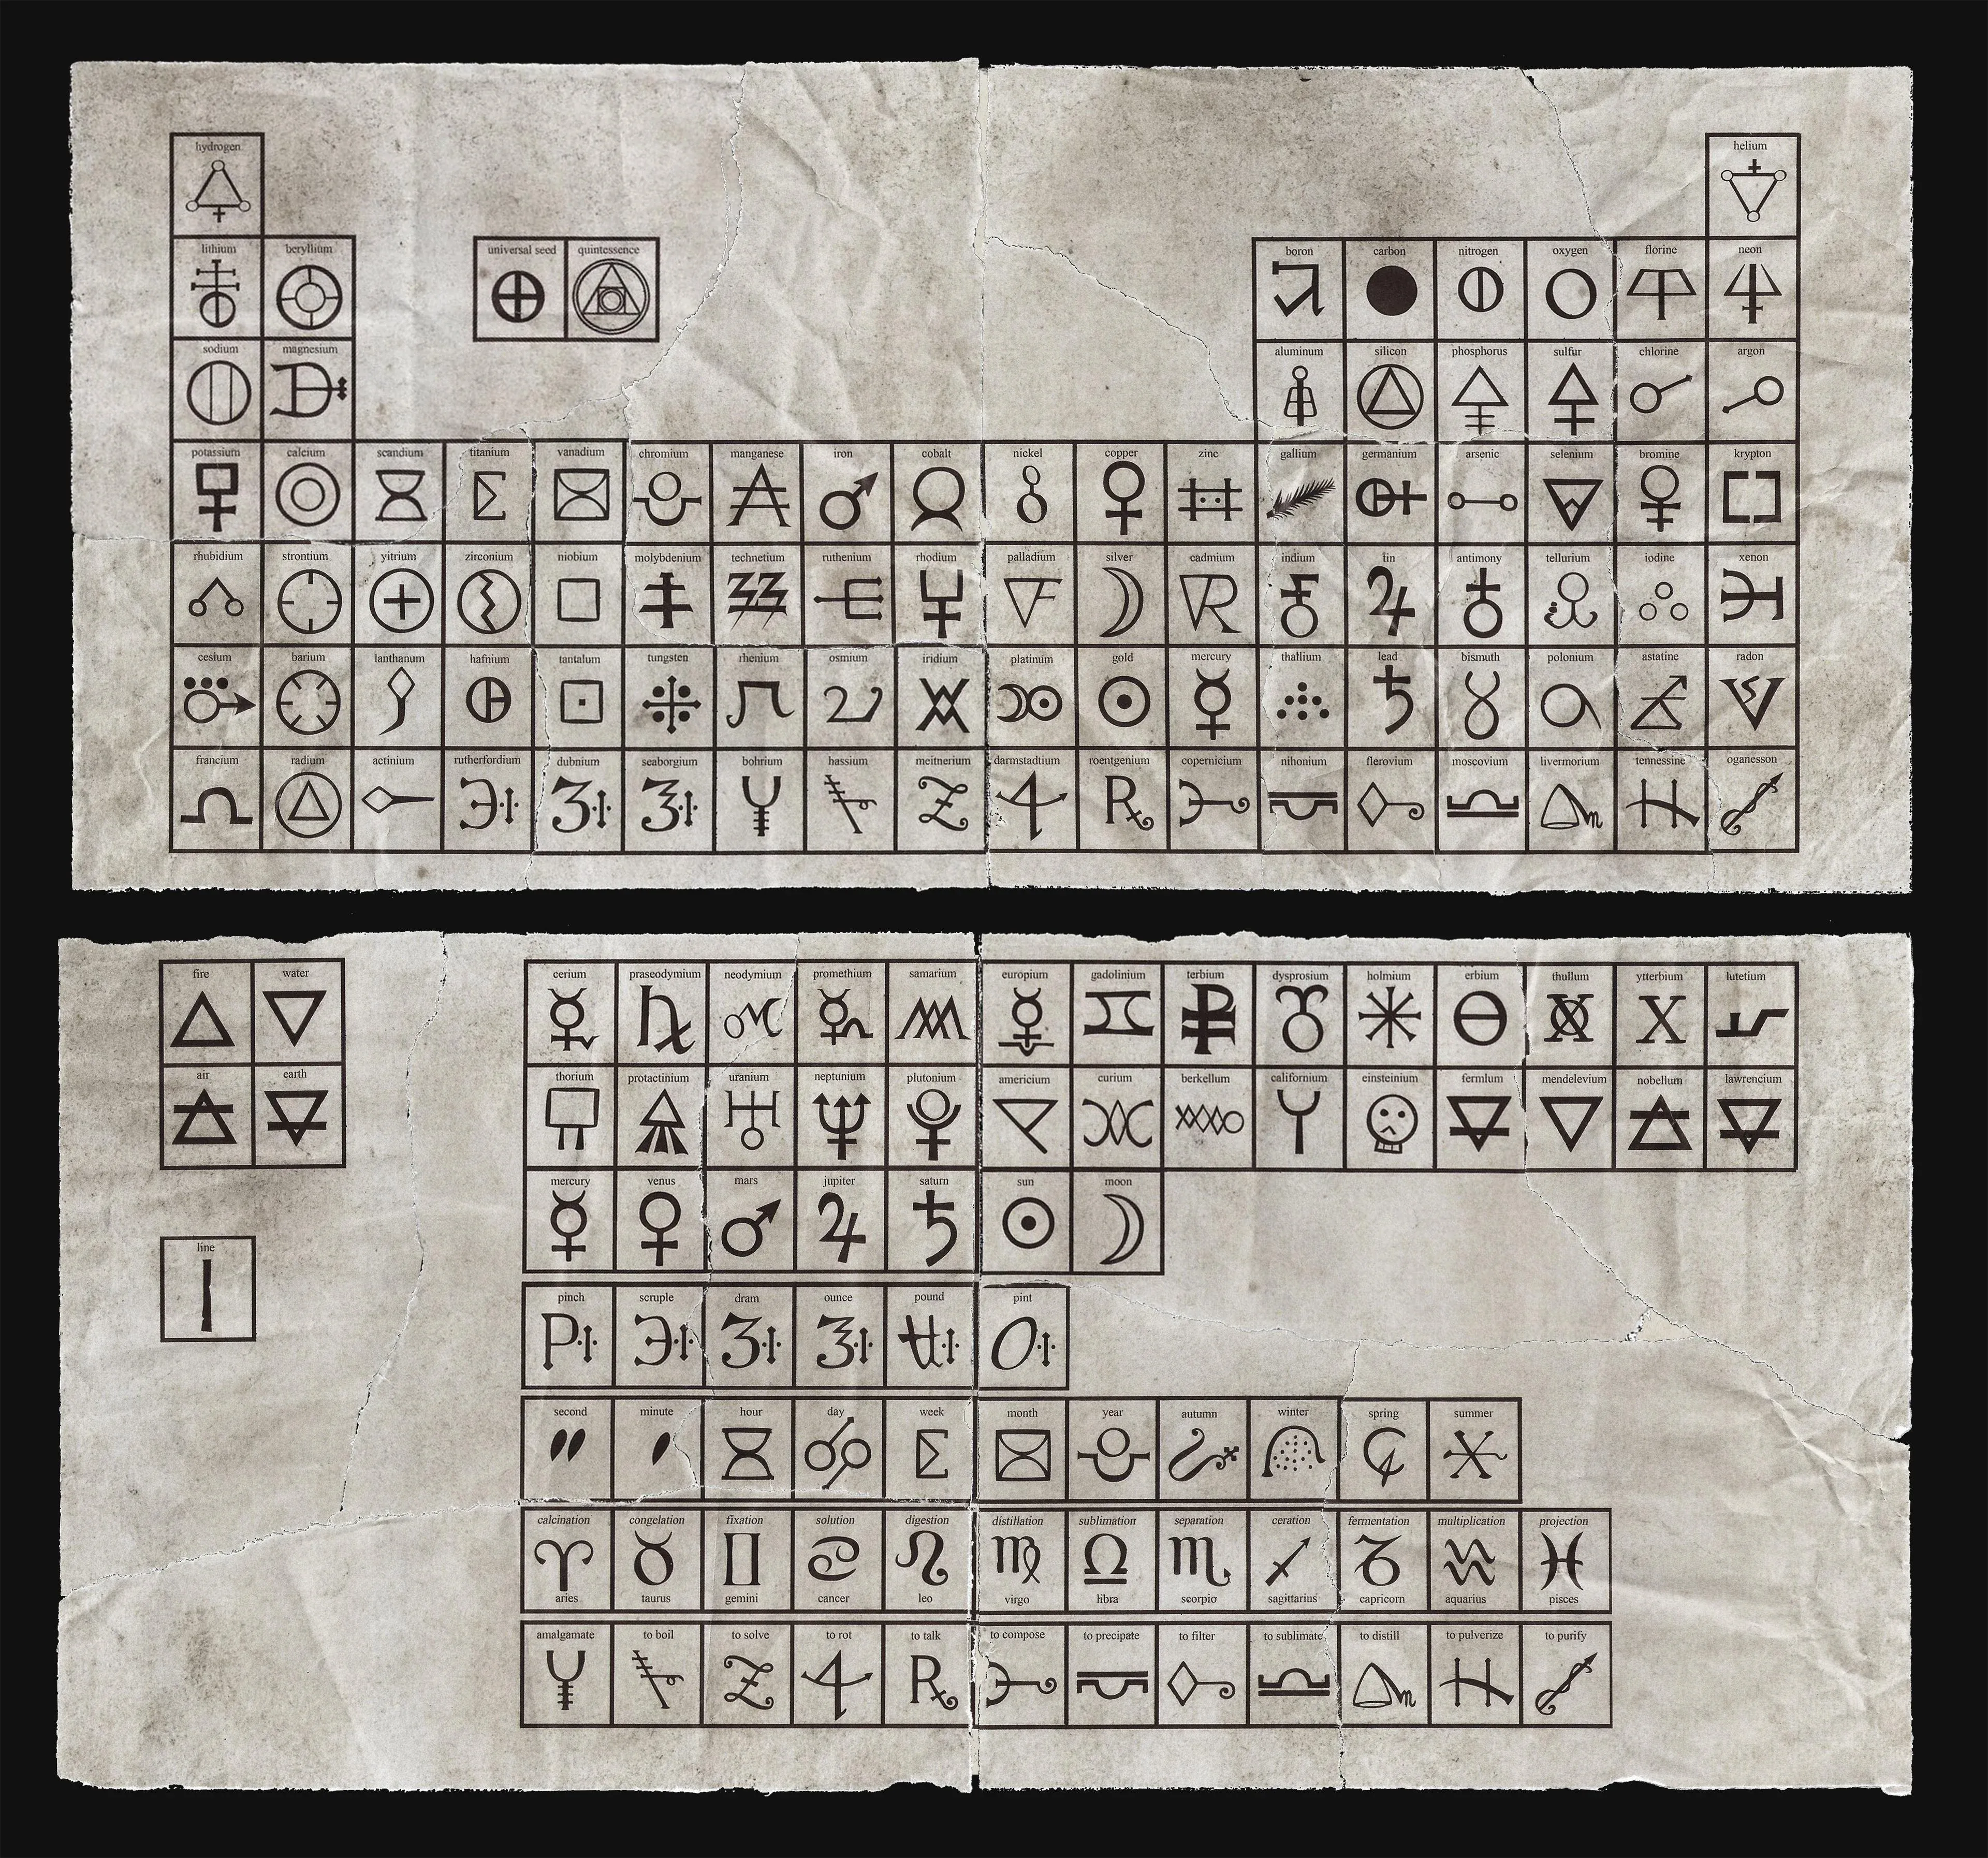 hydrogen helium
lithium beryllium universal seed quintessence boron carbon nitrogen oxygen florine neon
sodium magnesium aluminum silicon phosphorus sulfur chlorine argon
potassium calcium scandium titanium vanadium chromium manganese iron cobalt nickel copper zinc gallium germanium arsenic selenium bromine krypton
rhubidium strontium yitrium zirconium niobium molybdenium technetium ruthenium rhodium palladium silver cadmium indium tin antimony tellurium iodine xenon
cesium barium lanthanum hafnium tantalum tungsten rhenium osmium iridium platinum gold mercury thallium lead bismuth polonium astatine radon
francium radium actinium rutherfordium dubnium seaborgium bohrium hassium meitnerium darmstadtium roentgenium copernicium nihonium flerovium moscovium livermorium tennessine oganesson
fire water cerium praseodymium neodymium promethium samarium europium gadolinium terbium dysprosium holmium erbium thullum ytterbium lutetium
air earth thorium protactinium uranium neptunium plutonium americium curium berkellum californium einsteinium fermlum mendelevium nobellum lawrencium
mercury venus mars jupiter saturn sun moon
line
pinch scruple dram ounce pound pint
second minute hour day week month year autumn winter spring summer
calcination congelation fixation solution digestion distillation sublimation separation ceration fermentation multiplication projection
aries taurus gemini cancer leo virgo libra scorpio sagittarius capricorn aquarius pisces
amalgamate to boil to solve to rot to talk to compose to precipate to filter to sublimate to distill to pulverize to purify